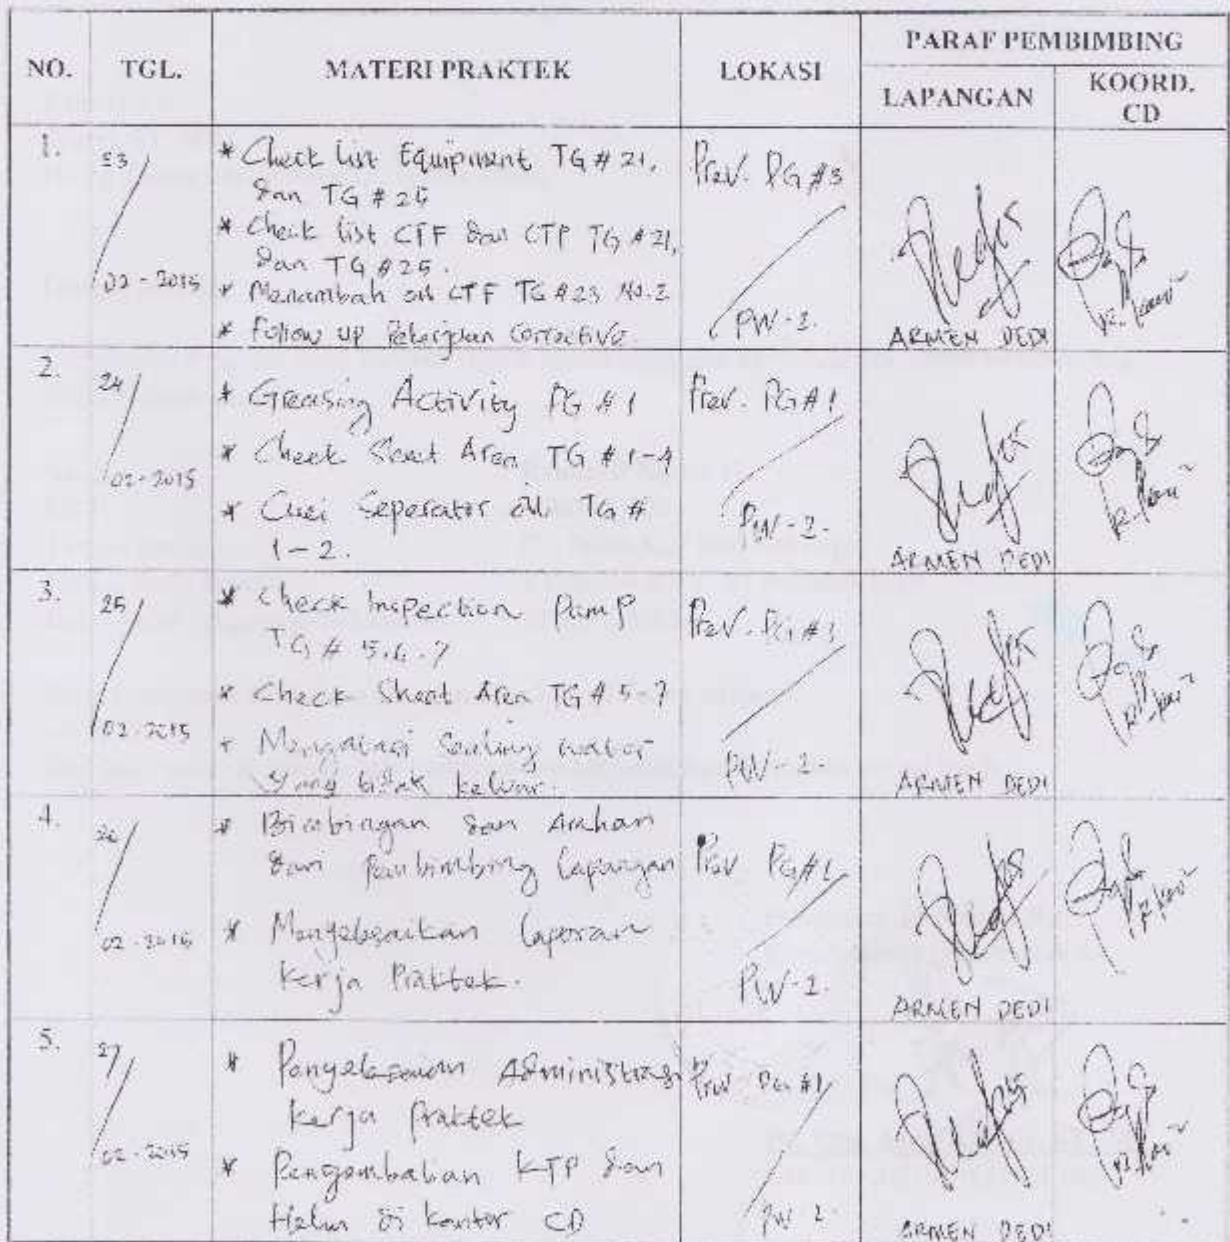 NO. TGL. MATERI PRAKTEK LOKASI PARAF PEMBIMBING
LAPANGAN KOORD. CD
1. 23/02-2015
* Check List Equipment TG # 21,
dan TG # 25
* Check list CTF dan CTP TG # 21,
dan TG # 25.
* Menambah oil CTF TG # 23 No.2
* Follow up Pekerjaan Corrective.
Prev. PG #3
PW-2.
ARMEN DEDI
2. 24/02-2015
* Greasing Activity PG # 1
* Check Sheet Area TG # 1-4
* Cuci Seperator Oli TG #
1-2.
Prev. PG #1
PW-2.
ARMEN DEDI
3. 25/02-2015
* Check Inspection Pump
TG # 5.6.7
* Check Sheet Area TG # 5-7
* Mengatasi Sealing water
yang tidak keluar.
Prev. PG #1
PW-2.
ARMEN DEDI
4. 26/02-2015
* Bimbingan dan Arahan
dari Pembimbing Lapangan
* Menyelesaikan Laporan
Kerja Praktek.
Prev PG #1
PW-2.
ARMEN DEDI
5. 27/02-2015
* Penyelesaian Administrasi
Kerja Praktek
* Pengembalian KTP dan
Helm di Kantor CD
Prev PG #1
PW 2
ARMEN DEDI